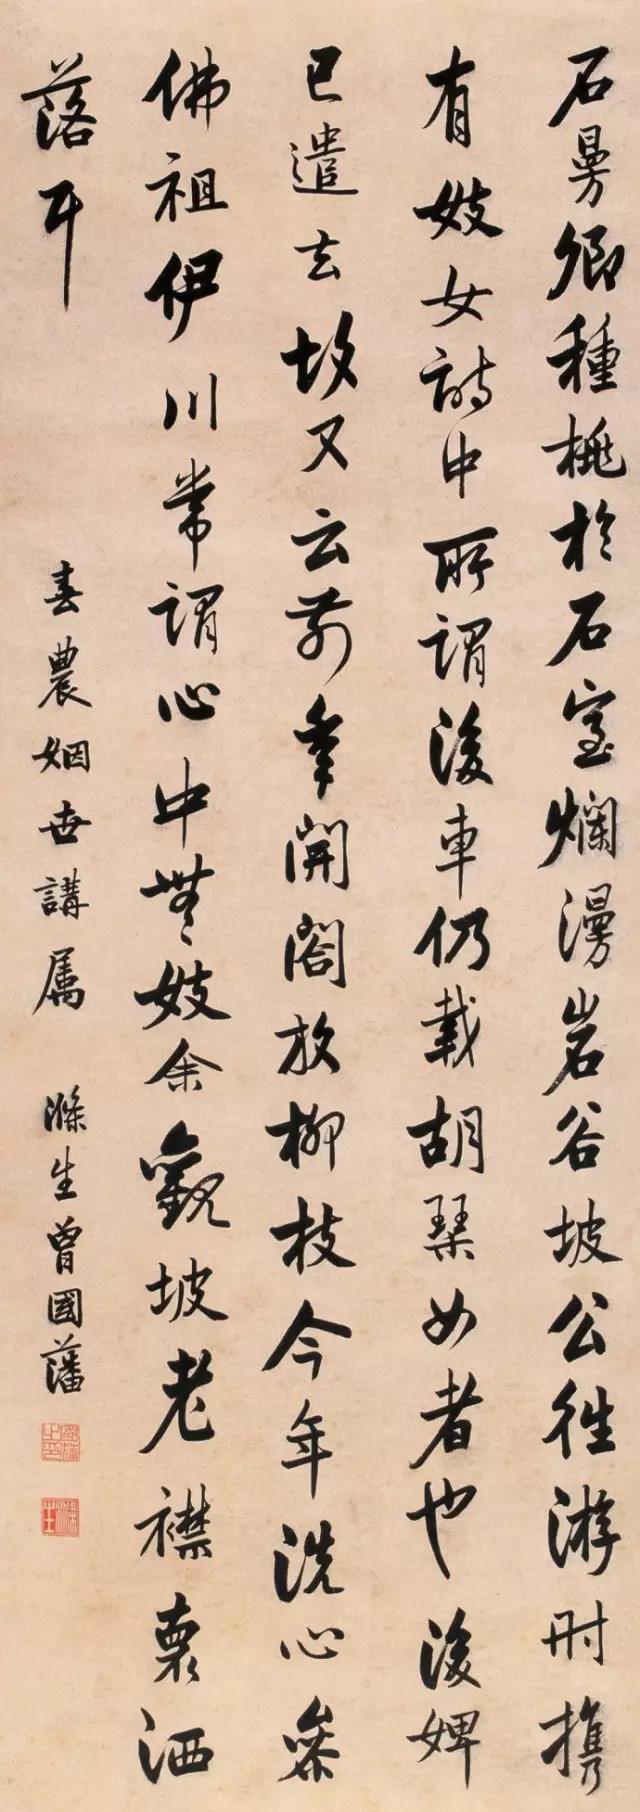 石曼卿種桃於石室爛漫岩谷坡公往游時攜
有妓女詩中所謂後車仍載胡琴女者也後婢
已遣去故又云前年開閤放柳枝今年洗心參
佛祖伊川常謂心中無妓余觀坡老襟裏洒
落耳
春農姻世講屬
滌生曾國藩
國藩之印
滌生